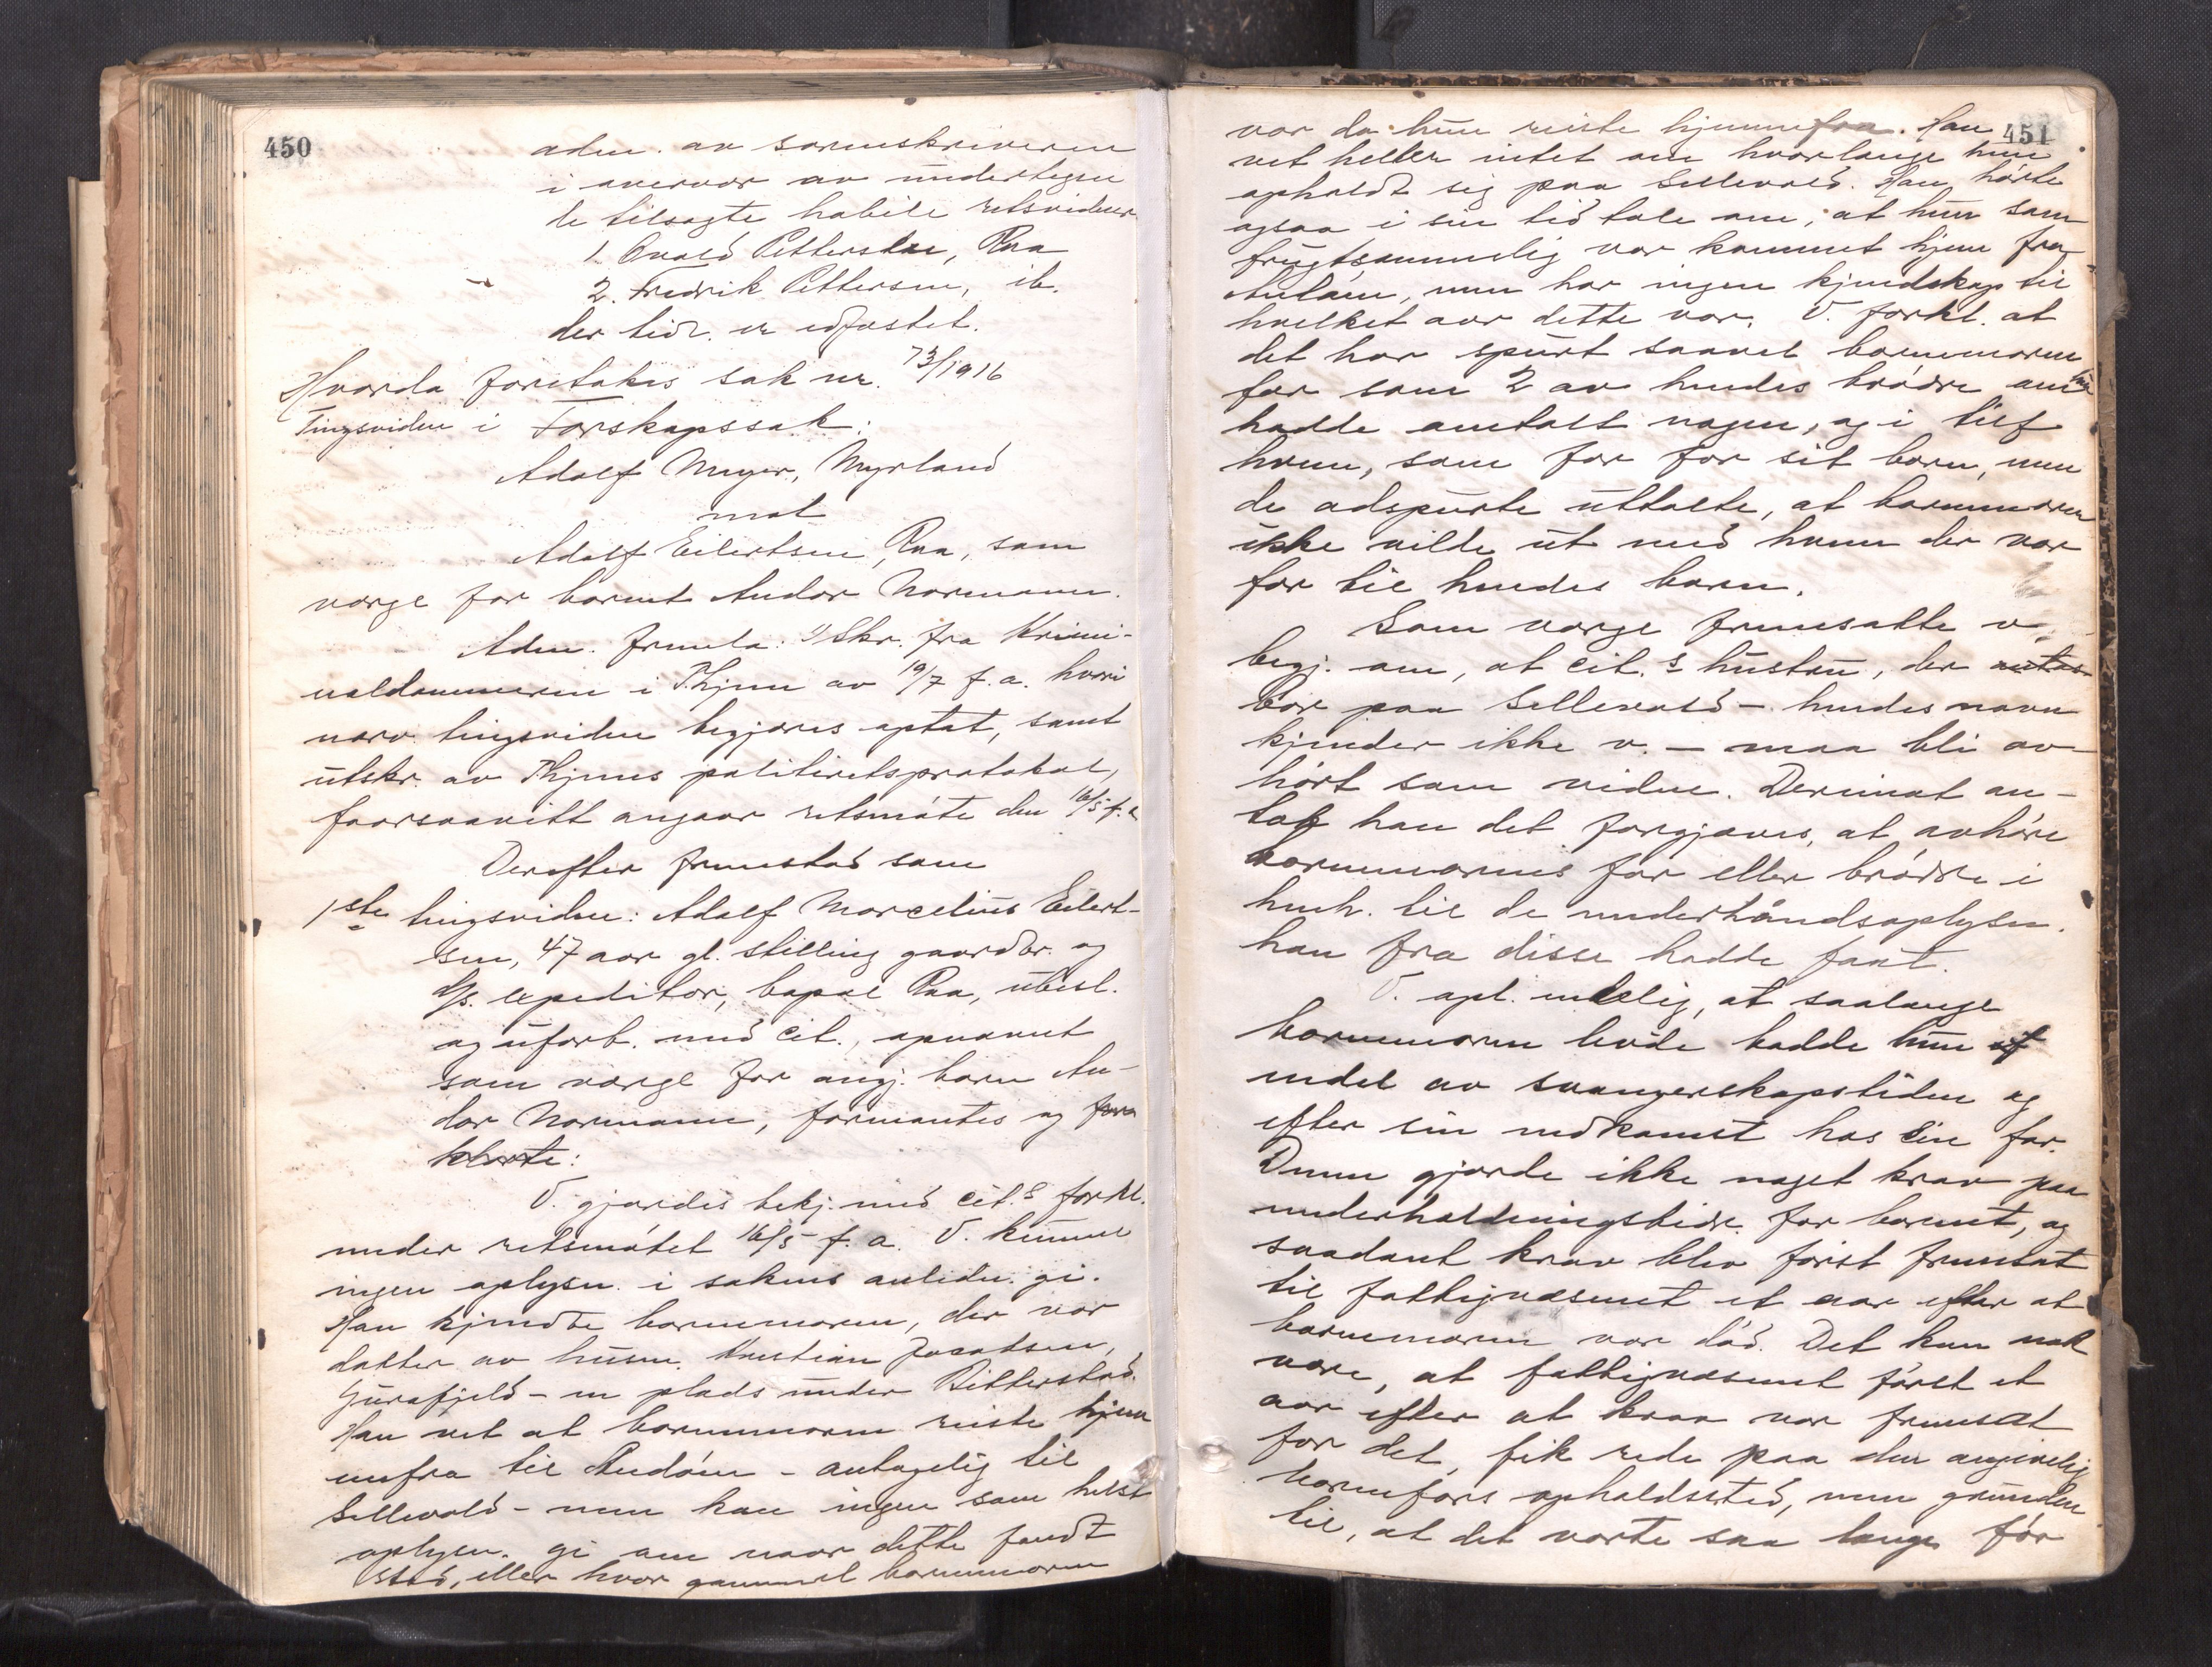 450
adm. av sorenskriveren
i overvær av undertegne
de tilsagte habile retsvidner
1. Ovald Pettersen, Raa
2. Fredrik Pettersen, ib.
der tidl. er edfæstet.
Hvorda foretokes sak nr. 73/1916
Tingsvidne i Farskapssak:
Adolf Meyer, Myrland
mot
Adolf Eilertsen, Raa, som
verge for barnet Andor Normann.
Adm. fremla: 1) Skr. fra Krimi-
naldommeren i Thjem av 19/7 f.a. hvori
nærv. tingsvidne begjæres optat, samt
utskr. av Thjems politiretsprotokol,
forsaavitt angaar retsmöte den 16/5 f.a.
Derefter fremstod som
1ste tingsvidne: Adolf Marcelius Eilert-
sen, 47 aar gl. stilling gaardbr. og
d/s. expeditör, bopæl Raa, ubesl.
og uforb. med cit., opnævnt
som verge for angj. barn An-
dor Normann, formantes og for
klarte:
V. gjordes bekj. med cit.s forkl.
under retsmötet 16/5 f.a. V. kunne
ingen oplysn. i sakens anledn. gi.
Han kjendte barnemoren, der var
datter av husm. Kristian Josatsen,
Jurafjeld - en plads under Bitterstad.
Han vet at barnemoren reiste hjem
mefra til Andöen - antagelig til
Sellevold - men kan ingen som helst
oplysn. gi om naar dette fandt
sted, eller hvor gammel barnemoren
451
var da hun reiste hjemmefra. Han
vet heller intet om hvorlange hun
opholdt sig paa Sellevold. Han hörte
ogsaa i sin tid tale om, at hun som
frugtsommelig var kommet hjem fra
Andöen, men har ingen kjendskap til
hvilket aar dette var. V. forkl. at
det har spurt saavel barnemorens
far som 2 av hendes brödre om hun
hadde omtalt nogen, og i tilf
hvem, som far for sit barn, men
de adspurte uttalte, at barnemoren
ikke vilde ut med hvem der var
far til hendes barn.
Som verge fremsatte v.
begj. om, at cit.s hustru, der
bor paa Sellevold - hendes navn
kjender ikke v. - maa bli av-
hört som vidne. Derimot an-
tok han det forgjæves, at avhöre
barnemorens far eller brödre i
henh. til de underhåndsoplysn.
han fra disse hadde faat.
V. opl. endelig, at saalænge
barnemoren levde hadde hun
endel av svangerskapstiden og
efter sin nedkomst hos sin far.
Denne gjorde ikke noget krav paa
underholdningsbidr. for barnet, og
saadant krav blev först fremsat
til fattigvæsenet et aar efter at
barnemoren var död. Det kan nok
være, at fattigvæsenet först et
aar efter at krav var fremsat
for det, fik rede paa den angivelig
barnefars opholdssted, men grunden
til, at det varte saa længe för